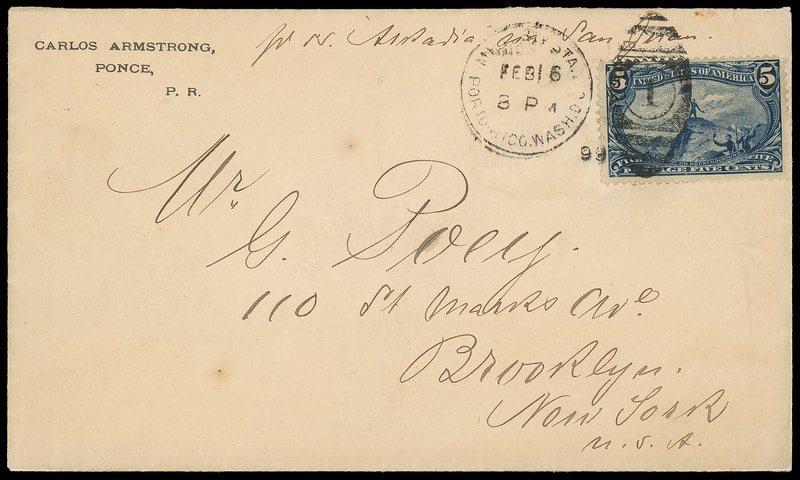 CARLOS ARMSTRONG,
PONCE,
P. R.
pr str. Arcadia via San Juan.
FEB 16
8 P M
PORTO RICO. WASH. D.C.
99
1
5 UNITED STATES OF AMERICA 5
FIVE FIVE
POSTAGE FIVE CENTS
Mr.
G. Poey.
110 St Marks Ave
Brooklyn.
New York
U. S. A.